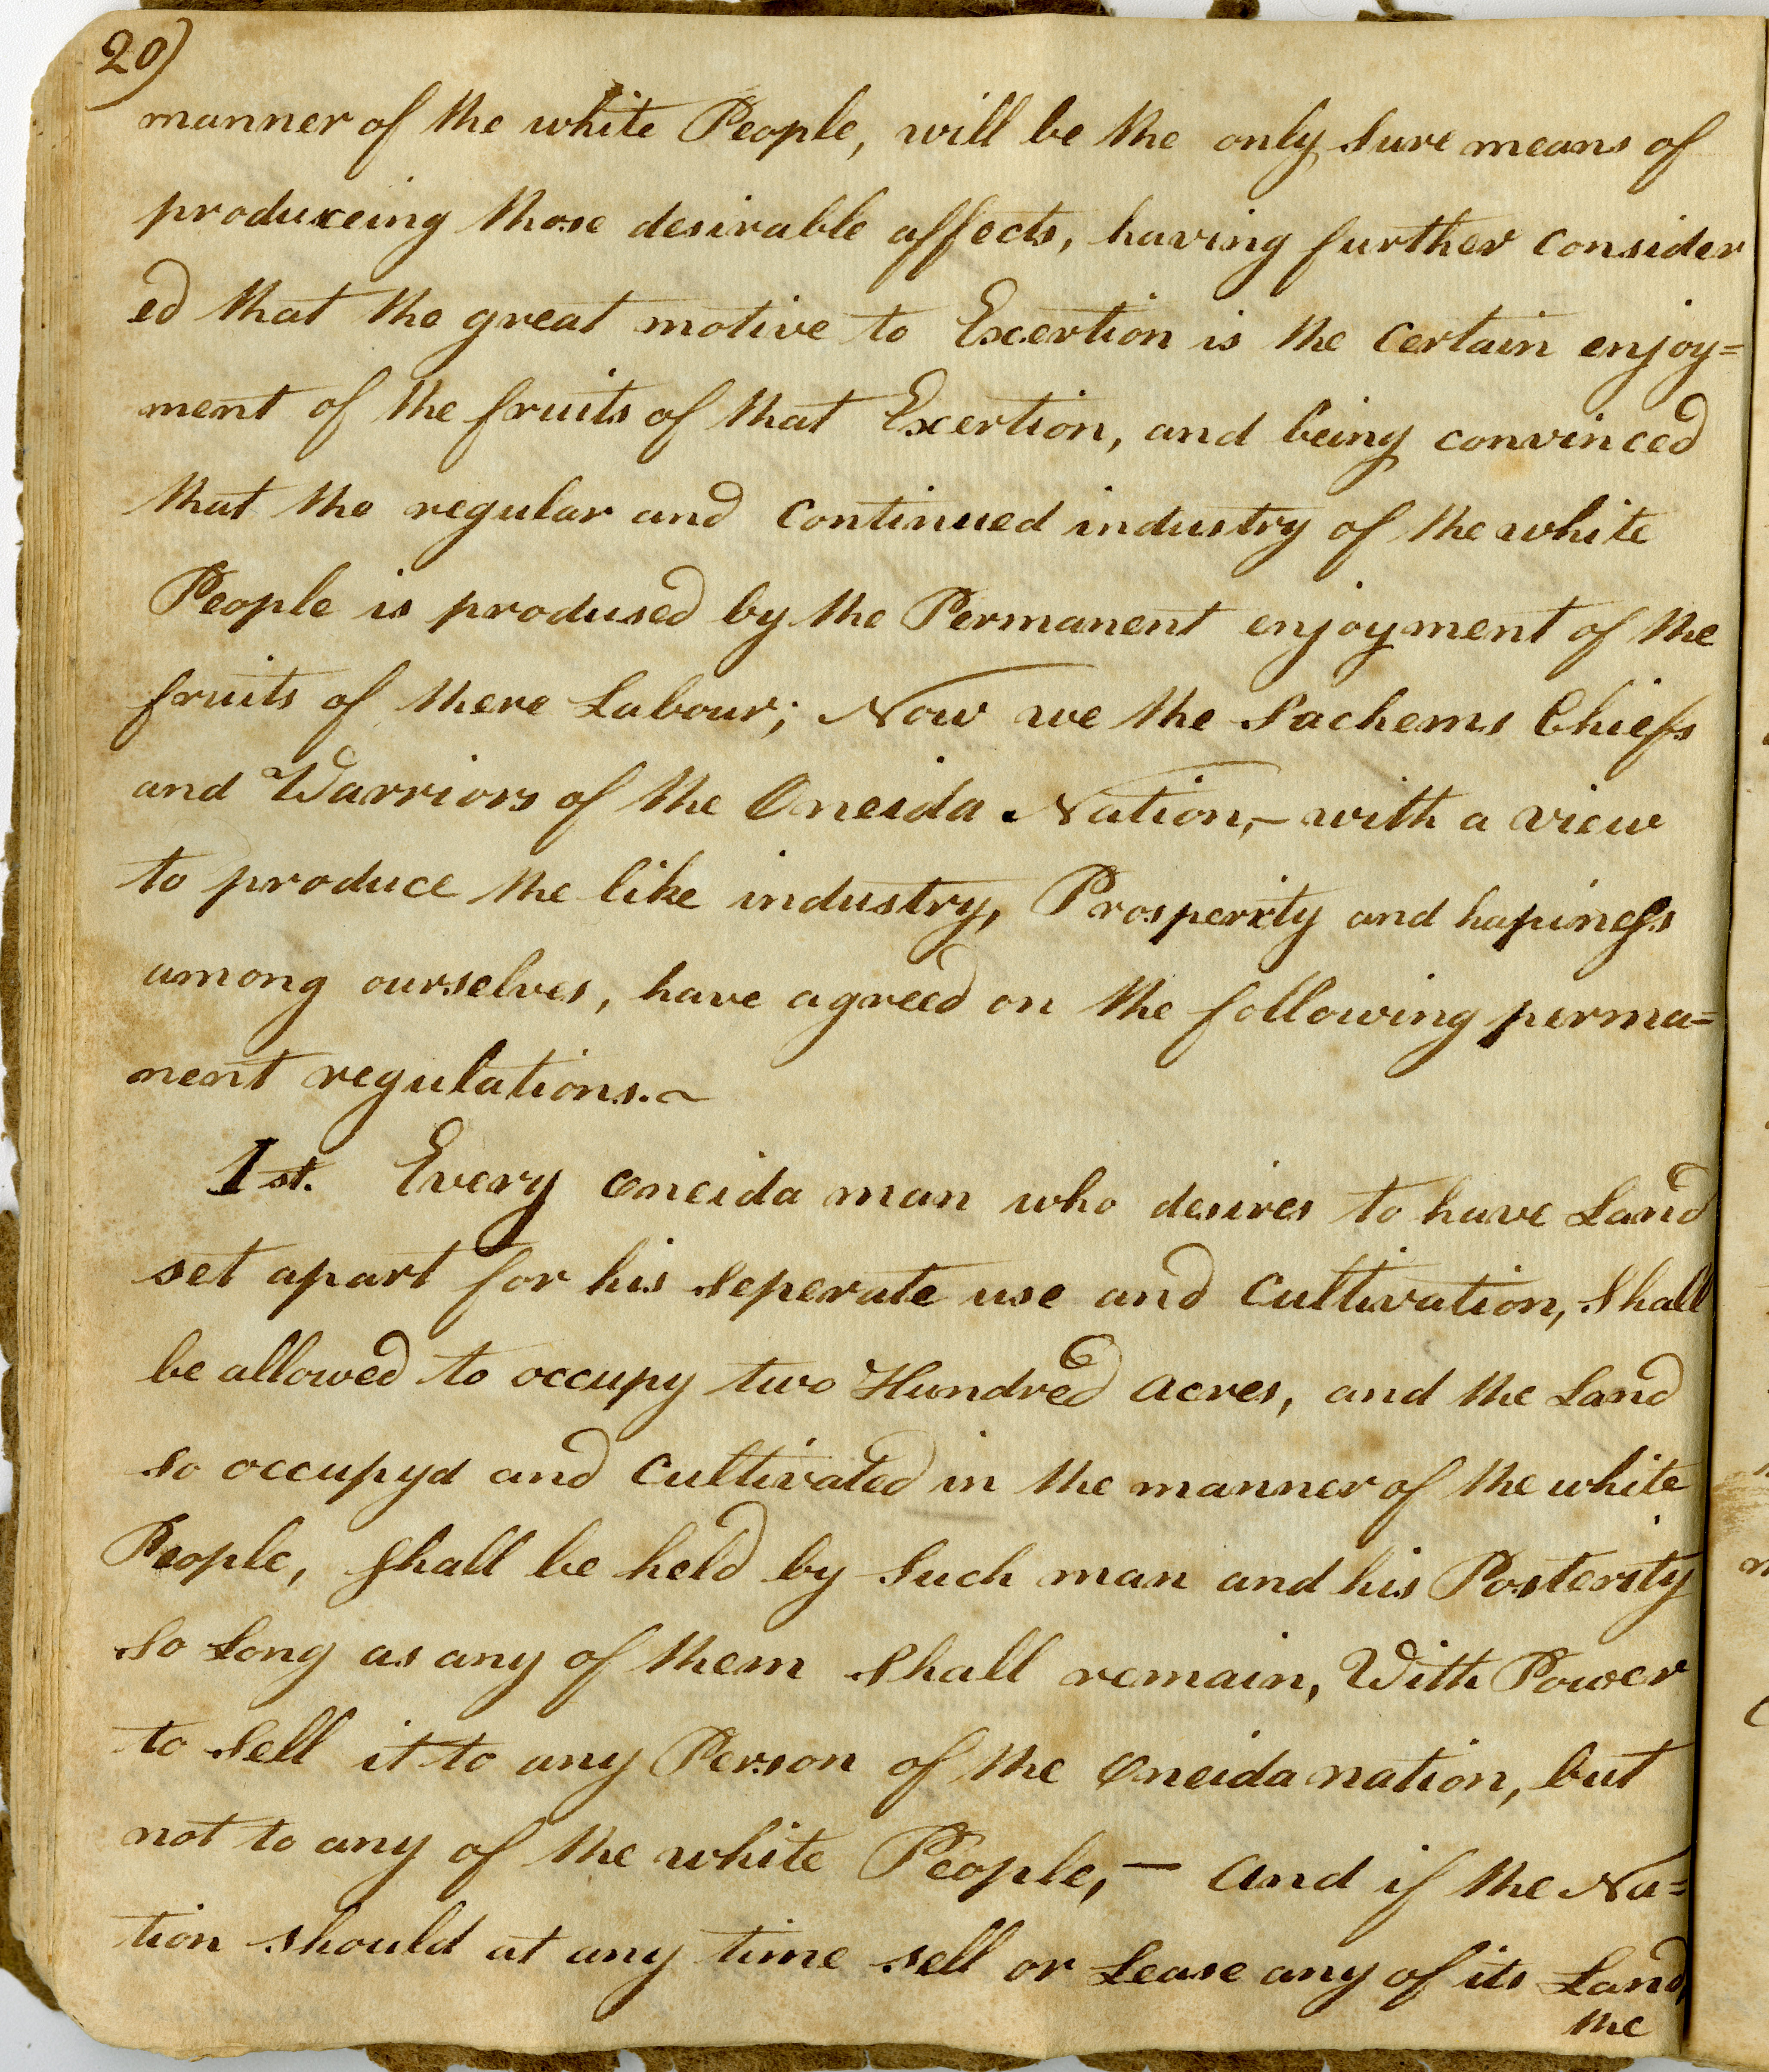 20)
manner of the white People, will be the only sure means of
produceing those desirable affects, having further consider
ed that the great motive to Excertion is the certain enjoy=
ment of the fruits of that Excertion, and being convinced
that the regular and continued industry of the white
People is prodused by the Permanent enjoyment of the
fruits of there Labour; Now we the Sachems Chiefs
and Warriors of the Oneida Nation,– with a view
to produce the like industry, Prosperity and hapiness
among ourselves, have agreed on the following perma=
nent regulations.~
1st. Every Oneida man who desires to have Land
set apart for his seperate use and cultivation, shall
be allowed to occupy two Hundred acres, and the Land
so occupyd and cultivated in the manner of the white
People, shall be held by such man and his Posterity
so long as any of them shall remain, With Power
to sell it to any Person of the Oneida nation, but
not to any of the white People,— and if the Na=
tion should at any time sell or Lease any of its Land,
the